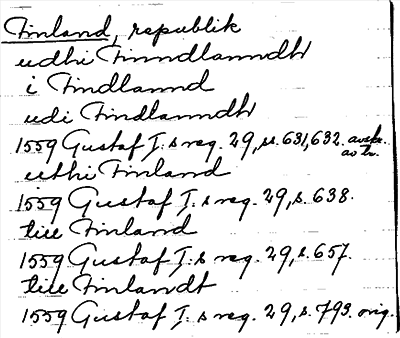 Finland, republik
udhi Finndlanndh
i Findlannd
udi Findlanndh
1559 Gustaf I:s reg. 29, s. 631, 632. avskr.
av br.
uthi Finland
1559 Gustaf I:s reg. 29, s. 638.
till Finland
1559 Gustaf I:s reg. 29, s. 657.
till Finlandt
1559 Gustaf I:s reg. 29, s. 793. orig.